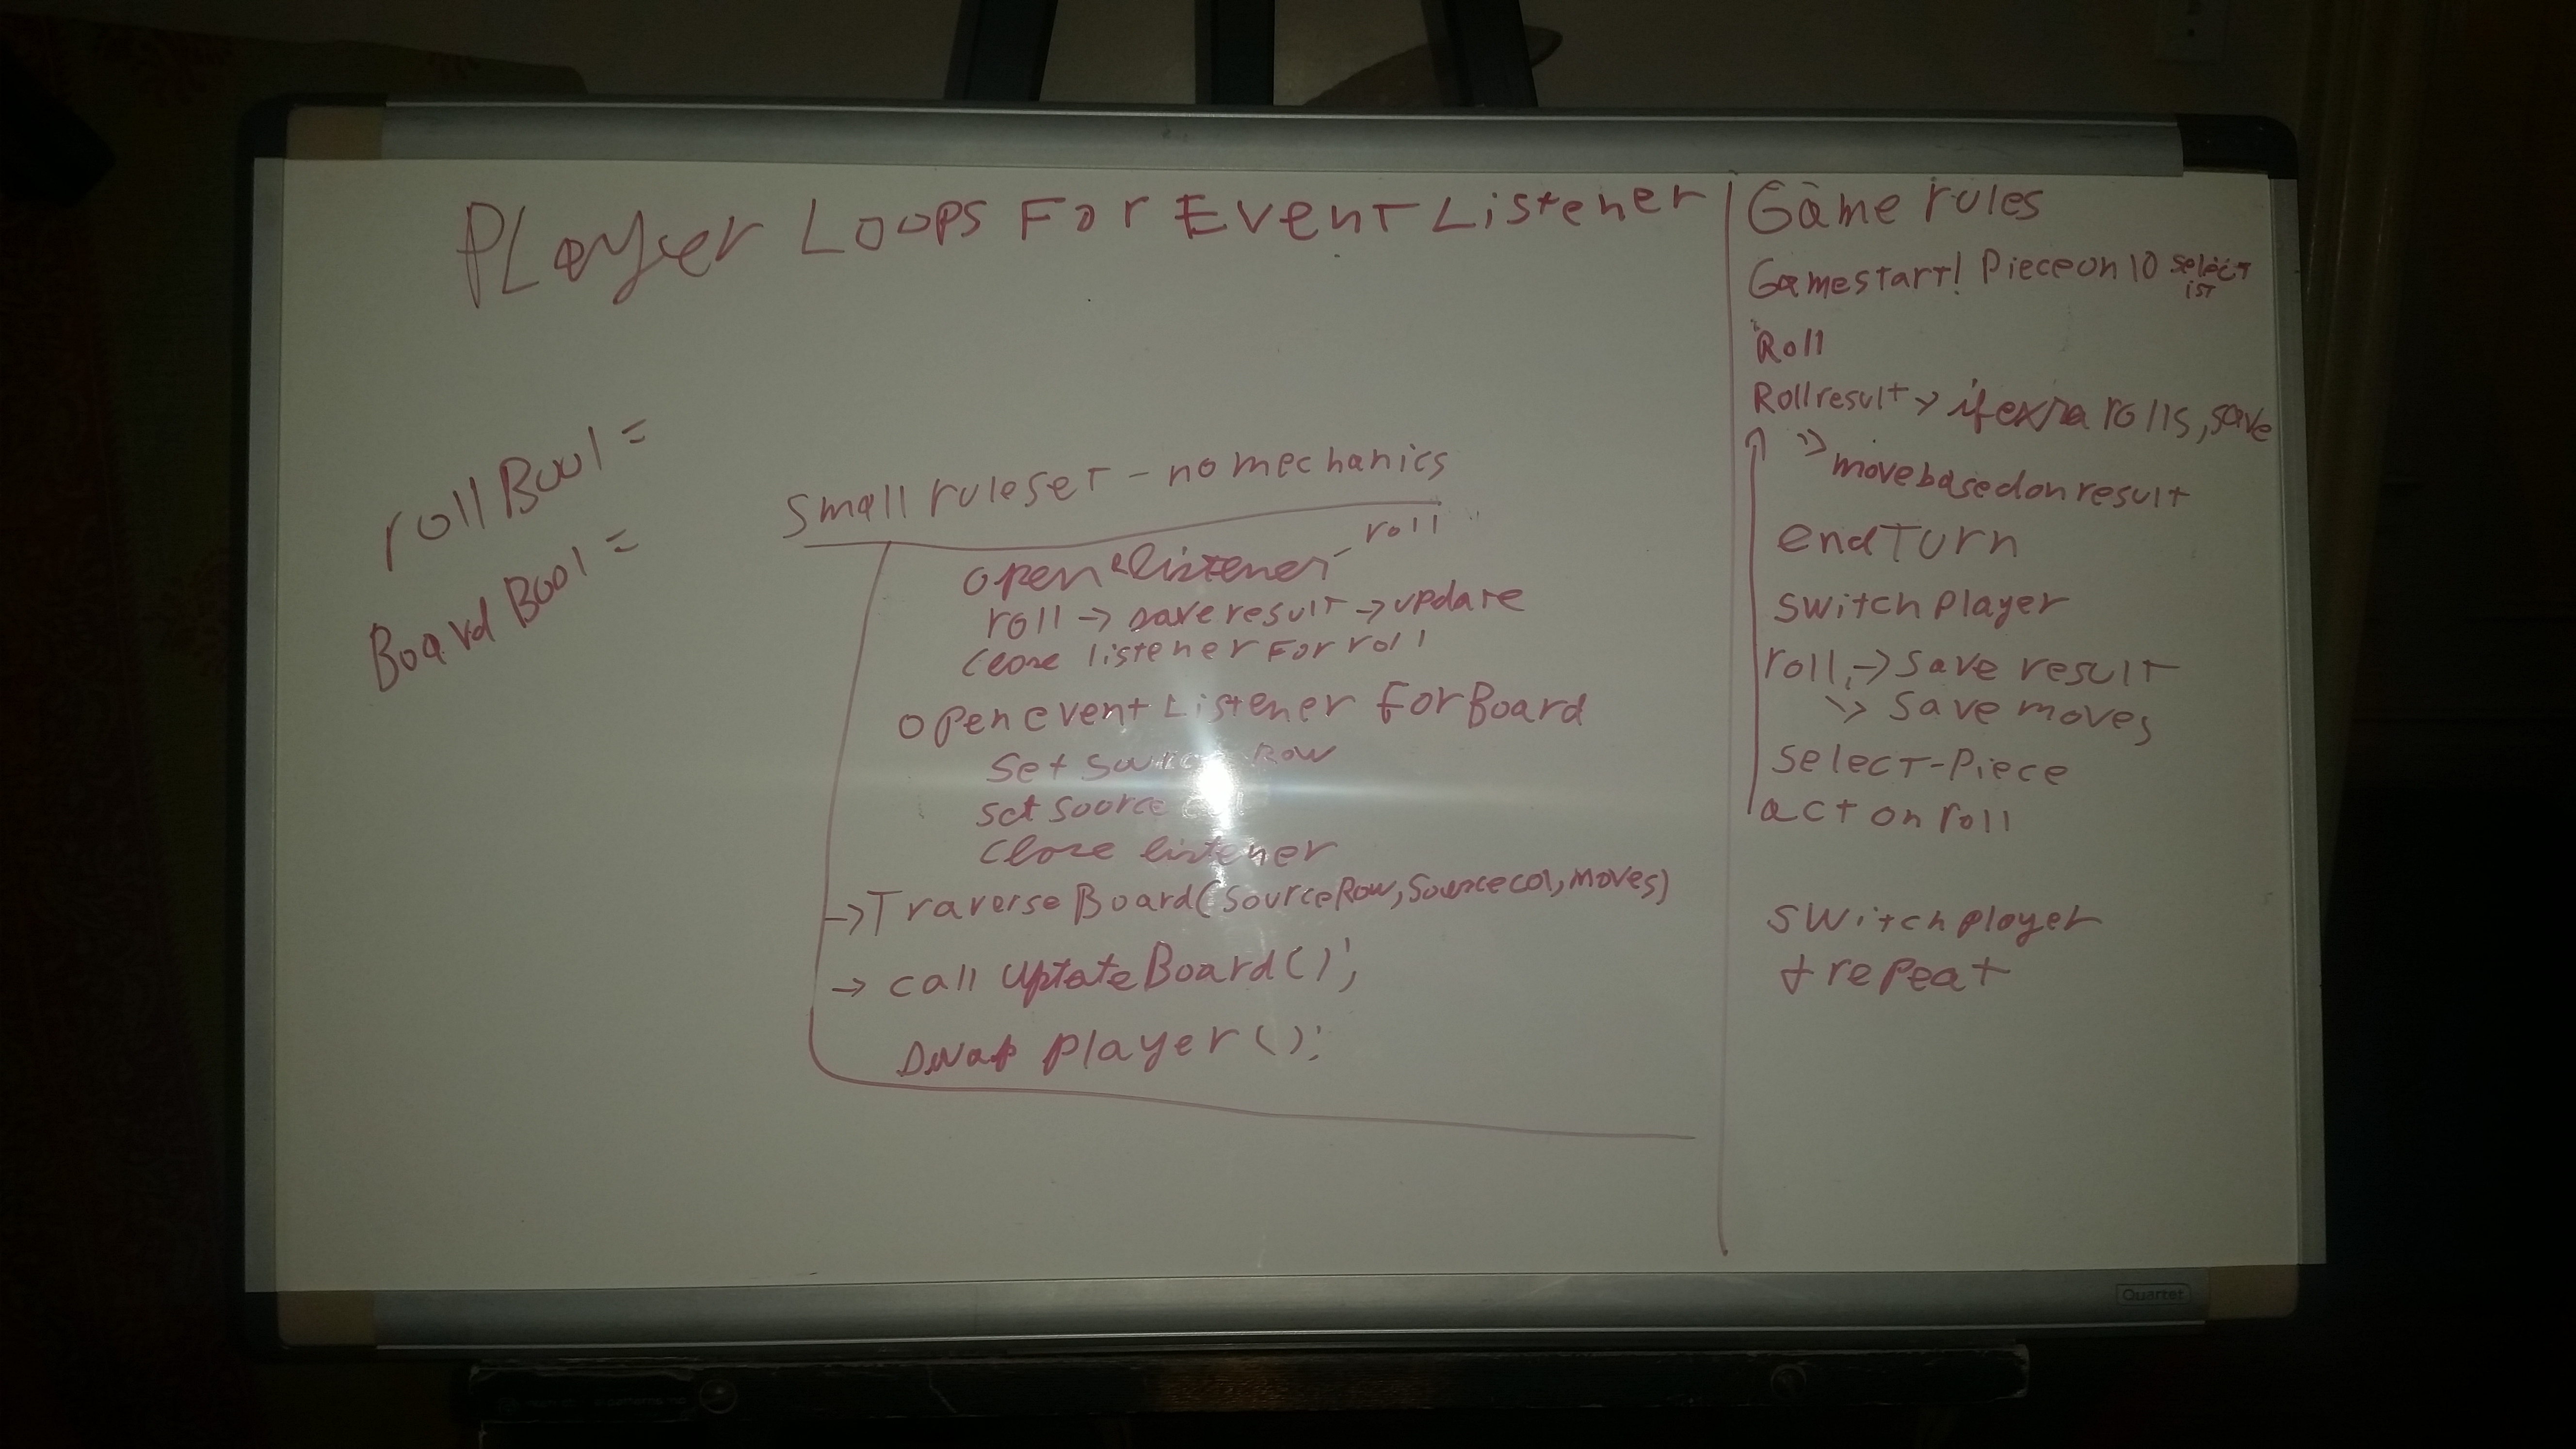 Player Loops For Event Listener
rollBool =
Board Bool =
small ruleset - no mechanics
open listener - roll
roll -> save result -> update
close listener For roll
open event Listener for Board
set source Row
set source
close listener
-> Traverse Board(SourceRow, Sourcecol, moves)
-> call UptateBoard();
swap player();
Game rules
Gamestart! Piece on 10 select
1st
Roll
Roll result -> if exra rolls, save
-> move based on result
end Turn
switch player
roll, -> save result
-> save moves
select-Piece
act on roll
switch player
+ repeat
Quartet